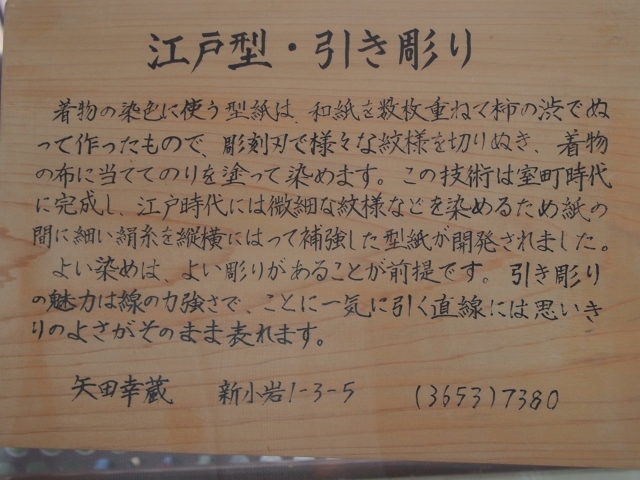 江戸型・引き彫り
着物の染色に使う型紙は、和紙を数枚重ねて柿の渋でぬ
って作ったもので、彫刻刃で様々な紋様を切りぬき、着物
の布に当ててのりを塗って染めます。この技術は室町時代
に完成し、江戸時代には微細な紋様などを染めるため紙の
間に細い絹糸を縦横にはって補強した型紙が開発されました。
よい染めは、よい彫りがあることが前提です。引き彫り
の魅力は線の力強さで、ことに一気に引く直線には思いき
りのよさがそのまま表れます。
矢田幸蔵 新小岩1-3-5 (3653)7380